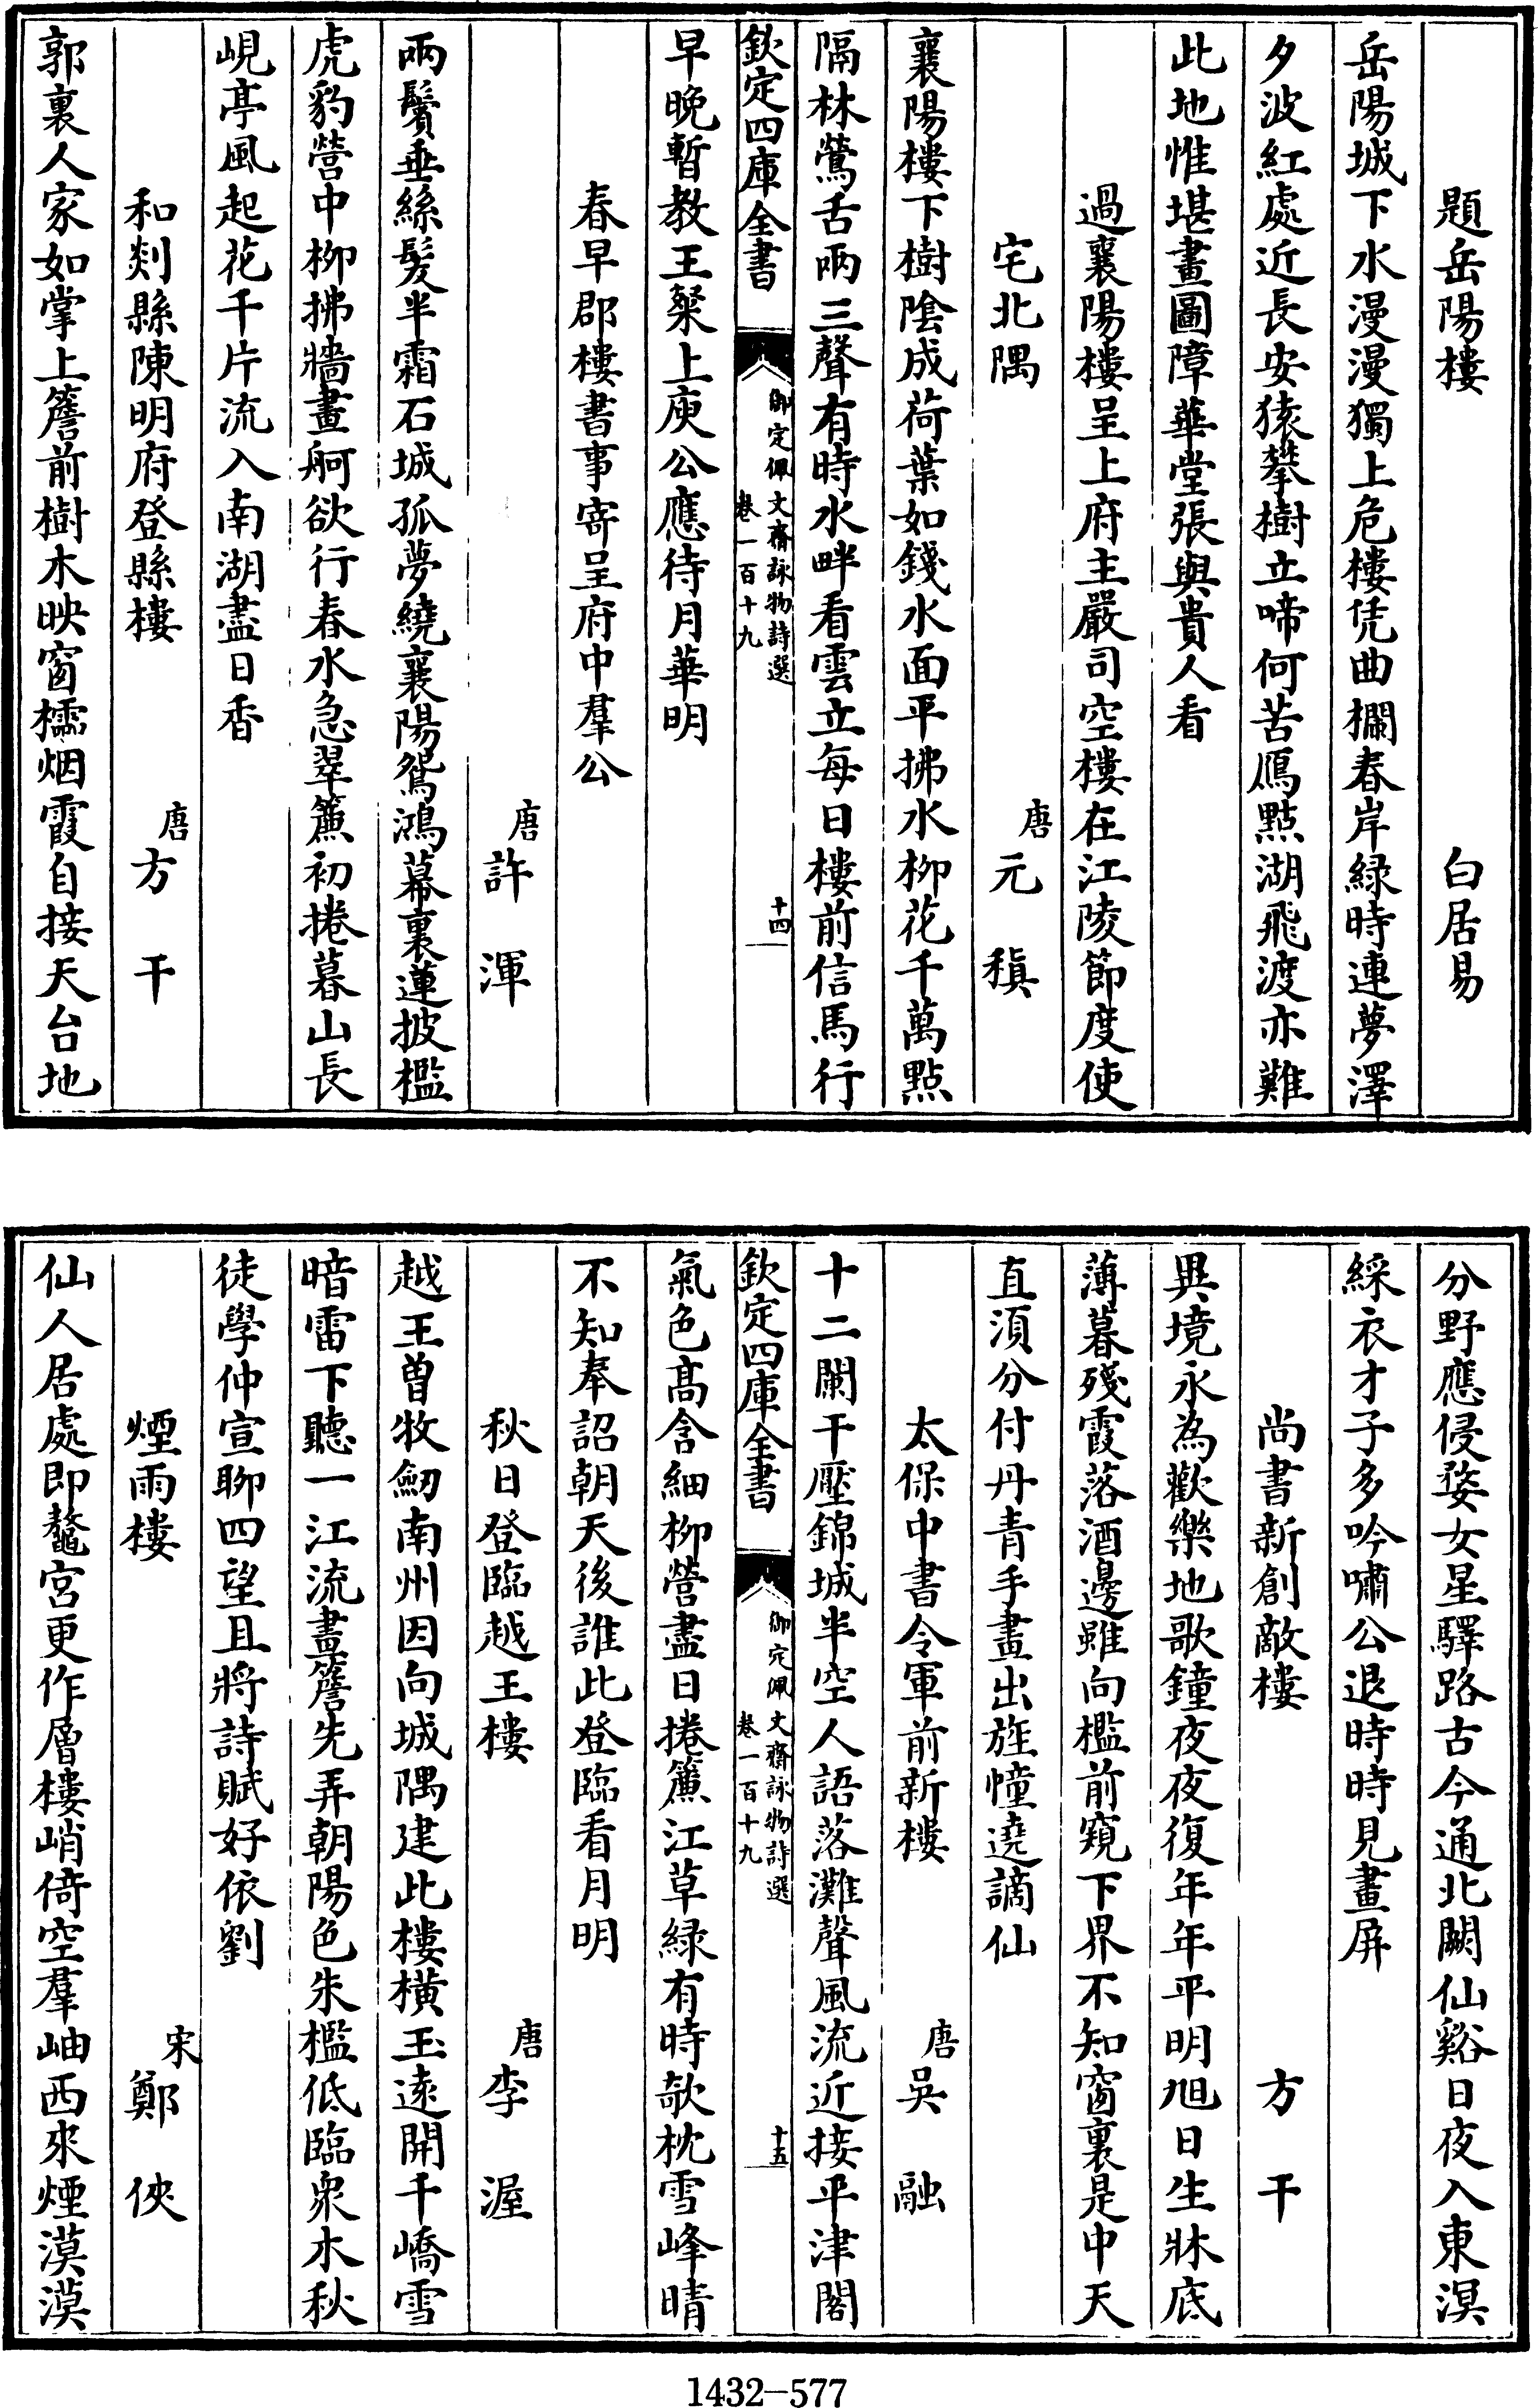 題岳陽樓　白居易
岳陽城下水漫漫獨上危樓凭曲欄春岸緑時連夢澤
夕波紅處近長安猿攀樹立啼何苦鴈點湖飛渡亦難
此地惟堪畫圖障華堂張與貴人看
過襄陽樓呈上府主嚴司空樓在江陵節度使
宅北隅　唐元稹
襄陽樓下樹陰成荷葉如錢水面平拂水柳花千萬點
隔林鶯舌兩三聲有時水畔看雲立每日樓前信馬行
欽定四庫全書　御定佩文齋詠物詩選　卷一百十九　十四
早晚暫教王粲上庾公應待月華明
春早郡樓書事寄呈府中羣公
唐許渾
兩鬢垂絲髮半霜石城孤夢繞襄陽鴛鴻幕裏蓮披檻
虎豹營中柳拂牆畫舸欲行春水急翠簾初捲暮山長
峴亭風起花千片流入南湖盡日香
和剡縣陳明府登縣樓　唐方干
郭裏人家如掌上簷前樹木映窗櫺烟霞自接天台地
分野應侵婺女星驛路古今通北闕仙谿日夜入東溟
綵衣才子多吟嘯公退時時見畫屏
尚書新創敵樓　方干
異境永為歡樂地歌鐘夜夜復年年平明旭日生牀底
薄暮殘霞落酒邊雖向檻前窺下界不知窗裏是中天
直須分付丹青手畫出旌幢遶謫仙
太保中書令軍前新樓　唐吳融
十二闌干壓錦城半空人語落灘聲風流近接平津閣
欽定四庫全書　御定佩文齋詠物詩選　卷一百十九　十五
氣色高含細柳營盡日捲簾江草緑有時欹枕雪峰晴
不知奉詔朝天後誰此登臨看月明
秋日登臨越王樓　唐李渥
越王曾牧劒南州因向城隅建此樓橫玉遠開千嶠雪
暗雷下聽一江流畫簷先弄朝陽色朱檻低臨衆木秋
徒學仲宣聊四望且將詩賦好依劉
煙雨樓　宋鄭俠
仙人居處即鼇宮更作層樓峭倚空羣岫西來煙漠漠
1432—577